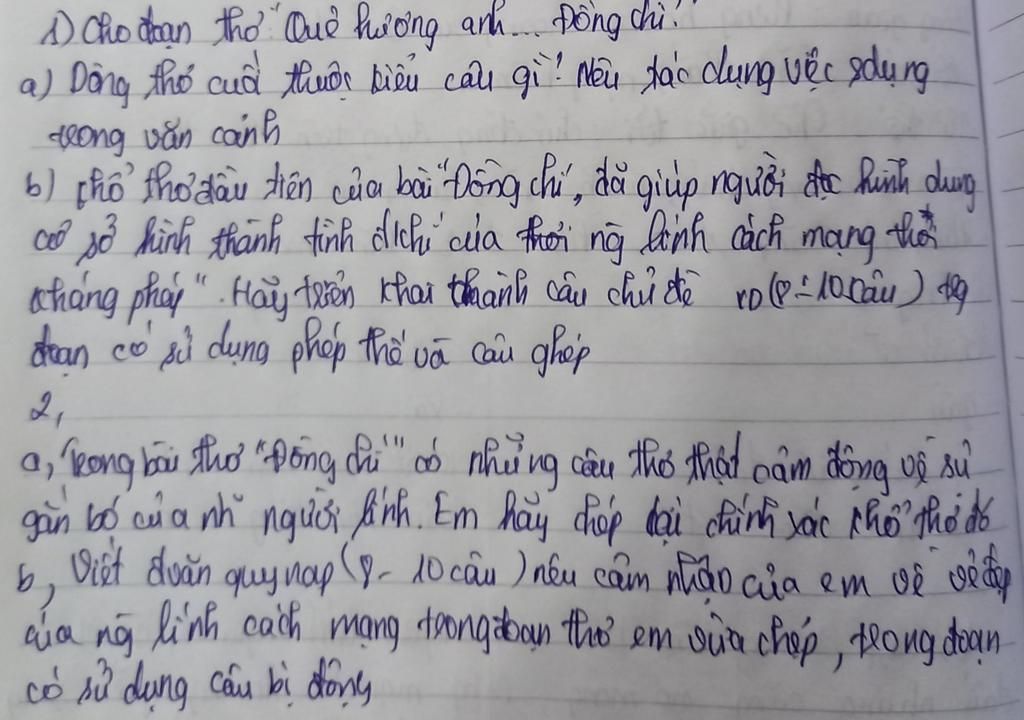 1) Cho đoạn thơ "Quê hương anh... Đồng chí!
a) Dòng thơ cuối thuộc kiểu câu gì? Nêu tác dụng việc sdụng
trong văn cảnh
b) khổ thơ đầu tiên của bài "Đồng chí", đã giúp người đọc hình dung
cơ sở hình thành tình đ/chí của ng lính cách mạng thời
kháng pháp". Hãy triển khai thành câu chủ đề (8-10 câu) trg
đoạn có sử dụng phép thế và câu ghép
2,
a, Trong bài thơ "Đồng chí" có những câu thơ thật cảm động về sự
gắn bó của nh người lính. Em hãy chép lại chính xác khổ thơ đó
b, Viết đoạn quy nạp (8-10 câu) nêu cảm nhận của em về vẻ đẹp
của ng lính cách mạng trong đoạn thơ em vừa chép, trong đoạn
có sử dụng câu bị động